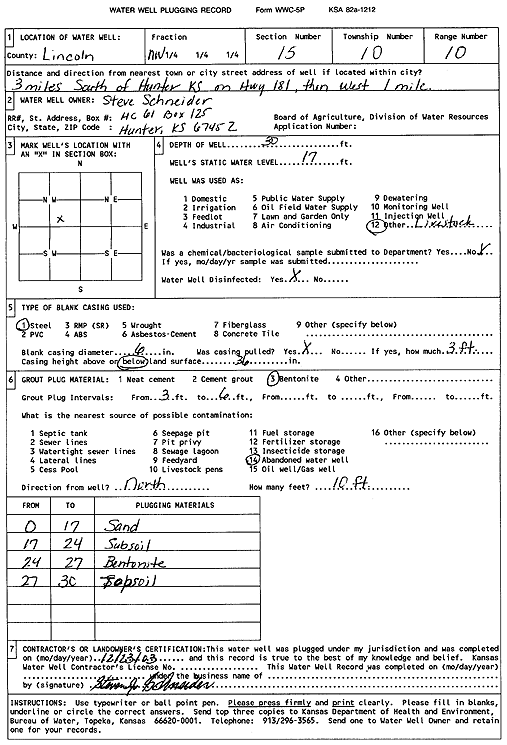 WATER WELL PLUGGING RECORD Form WWC-5P KSA 82a-1212
1 LOCATION OF WATER WELL: Fraction Section Number Township Number Range Number
County: Lincoln NW1/4 1/4 1/4 15 10 10
Distance and direction from nearest town or city street address of well if located within city?
3 miles South of Hunter KS on Hwy 181, then West 1 mile.
2 WATER WELL OWNER: Steve Schneider
RR#, St. Address, Box #: HC 61 Box 125 Board of Agriculture, Division of Water Resources
City, State, ZIP Code : Hunter, KS 67452 Application Number:
3 MARK WELL'S LOCATION WITH AN "X" IN SECTION BOX:
N
N W N E
X
W E
S W S E
S
4 DEPTH OF WELL...30...ft.
WELL'S STATIC WATER LEVEL...17...ft.
WELL WAS USED AS:
1 Domestic 5 Public Water Supply 9 Dewatering
2 Irrigation 6 Oil Field Water Supply 10 Monitoring Well
3 Feedlot 7 Lawn and Garden Only 11 Injection Well
4 Industrial 8 Air Conditioning 12 Other..Livestock
Was a chemical/bacteriological sample submitted to Department? Yes....No.X.
If yes, mo/day/yr sample was submitted...................
Water Well Disinfected: Yes.X.. No......
5 TYPE OF BLANK CASING USED:
1 Steel 3 RMP (SR) 5 Wrought 7 Fiberglass 9 Other (specify below)
2 PVC 4 ABS 6 Asbestos-Cement 8 Concrete Tile
Blank casing diameter...6...in. Was casing pulled? Yes.X.. No...... If yes, how much.3 ft..
Casing height above or below land surface...36...in.
6 GROUT PLUG MATERIAL: 1 Neat cement 2 Cement grout 3 Bentonite 4 Other.............
Grout Plug Intervals: From..3..ft. to..6..ft., From.....ft. to .....ft., From..... to.....ft.
What is the nearest source of possible contamination:
1 Septic tank 6 Seepage pit 11 Fuel storage 16 Other (specify below)
2 Sewer lines 7 Pit privy 12 Fertilizer storage
3 Watertight sewer lines 8 Sewage lagoon 13 Insecticide storage
4 Lateral lines 9 Feedyard 14 Abandoned water well
5 Cess Pool 10 Livestock pens 15 Oil well/Gas well
Direction from well? ..North......... How many feet? ....10 ft....
FROM TO PLUGGING MATERIALS
0 17 Sand
17 24 Subsoil
24 27 Bentonite
27 30 Topsoil
7 CONTRACTOR'S OR LANDOWNER'S CERTIFICATION:This water well was plugged under my jurisdiction and was completed
on (mo/day/year)..12/23/03...... and this record is true to the best of my knowledge and belief. Kansas
Water Well Contractor's License No. ................. This Water Well Record was completed on (mo/day/year)
.................. under the business name of ..................
by (signature) Steven J. Schneider
INSTRUCTIONS: Use typewriter or ball point pen. Please press firmly and print clearly. Please fill in blanks,
underline or circle the correct answers. Send top three copies to Kansas Department of Health and Environment,
Bureau of Water, Topeka, Kansas 66620-0001. Telephone: 913/296-3565. Send one to Water Well Owner and retain
one for your records.